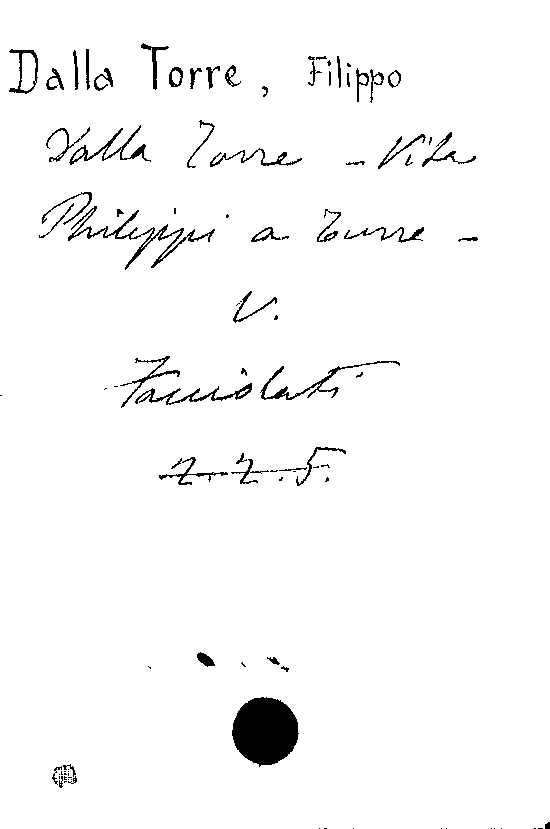 Dalla Torre, Filippo
Dalla Torre - Vita
Philippi a Turre -
V.
Facciolati
2.2.5.